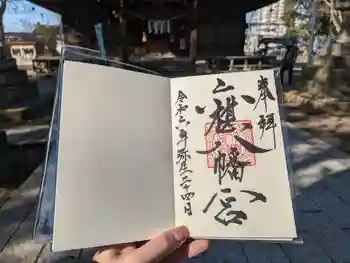 奉拝
六椹八幡宮
令和六年弥生二十四日